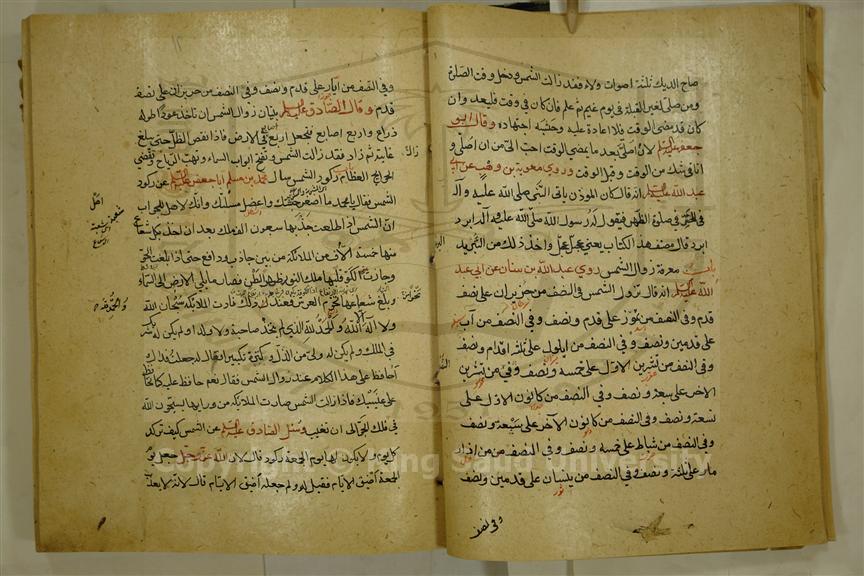 صاح الديك ثلثة اصوات ولاء فقد زالت الشمس ودخل وقت الصلوة
ومن صلى لغير القبلة في يوم غيم ثم علم فان كان في وقت فليعد وان
كان قد مضى الوقت فلا اعادة عليه وحسبه اجتهاده وقال ابو
جعفر لان اصلي بعد ما يمضي الوقت احب الي من ان اصلي و
انا في شك من الوقت وقبل الوقت وروى معوية بن وهب عن ابي
عبد الله انه قال كان المؤذن ياتي النبي صلى الله عليه وآله
في الحر في صلوة الظهر فيقول له رسول الله صلى الله عليه وآله ابرد
ابرد قال مصنف هذا الكتاب يعني عجل عجل واخذ ذلك من التبريد
باب معرفة زوال الشمس روى عبد الله بن سنان عن ابي عبد
الله انه قال تزول الشمس في النصف من حزيران على نصف
قدم وفي النصف من تموز على قدم ونصف وفي النصف من آب
على قدمين ونصف وفي النصف من ايلول على ثلثة اقدام ونصف
وفي النصف من تشرين الاول على خمسة ونصف وفي النصف من تشرين
الآخر على سبعة ونصف وفي النصف من كانون الاول على
تسعة ونصف وفي النصف من كانون الآخر على سبعة ونصف
وفي النصف من شباط على خمسة ونصف وفي النصف من اذار
على ثلثة ونصف وفي النصف من نيسان على قدمين ونصف
وفي نصف
وفي النصف من ايار على قدم ونصف وفي النصف من حزيران على نصف
قدم وقال الصادق تبيان زوال الشمس ان تاخذ عودا طوله
ذراع واربع اصابع فتجعل اربع اصابع في الارض فاذا نقص الظل حتى يبلغ
غايته ثم زاد فقد زالت الشمس وتفتح ابواب السماء وتهب الرياح وتقضى
الحوايج العظام ركود الشمس سال محمد بن مسلم ابا جعفر عن ركود
الشمس فقال يا محمد ما اصغر جثتك واعضل مسئلتك وانك لاهل للجواب
ان الشمس اذا طلعت جذبها سبعون الف ملك بعد ان اخذ بكل شعاع
منها خمسة الآف من الملائكة من بين جاذب ودافع حتى اذا بلغت الجو
وجازت الكو قلبها ملك النور ظهرا لبطن فصار ما يلي الارض الى السماء
وبلغ شعاعها تخوم العرش فعند ذلك نادت الملائكة سبحان الله
ولا اله الا الله والحمد لله الذي لم يتخذ صاحبة ولا ولدا ولم يكن له شريك
في الملك ولم يكن له ولي من الذل وكبره تكبيرا فقال له جعلت فداك
احافظ على هذا الكلام عند زوال الشمس فقال نعم حافظ عليه كما تحافظ
على عينيك فاذا زالت الشمس صارت الملائكة من ورائها يسبحون الله
في فلك الجو الى ان تغيب وسئل الصادق عن الشمس كيف تركد
كل يوم ولا يكون لها يوم الجمعة ركود قال لان الله عز وجل جعل يوم
الجمعة اضيق الايام فقيل له ولم جعله اضيق الايام قال لانه لا يعذب
Copyright © King Saud University